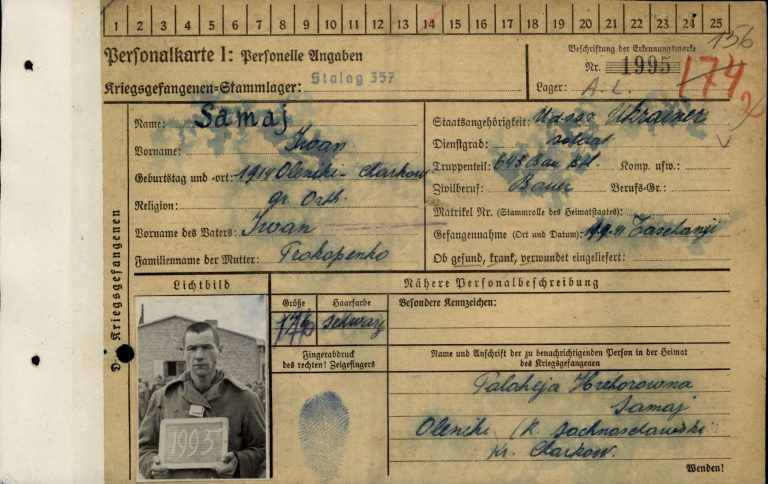 1 2 3 4 5 6 7 8 9 10 11 12 13 14 15 16 17 18 19 20 21 22 23 24 25
Personalkarte I: Personelle Angaben
Kriegsgefangenen-Stammlager: Stalag 357
Beschriftung der Erkennungsmarke
Nr. 1995
Lager: A. L.
156
174
Des Kriegsgefangenen
Name: Samaj
Vorname: Iwan
Geburtstag und -ort: 1914 Oleniki - Charkow
Religion: gr. Orth.
Vorname des Vaters: Iwan
Familienname der Mutter: Prokopenko
Staatsangehörigkeit: UdSSR Ukrainer
Dienstgrad: Soldat
Truppenteil: 643 Bau Btl Komp. usw.:
Zivilberuf: Bauer Berufs-Gr.:
Matrikel Nr. (Stammrolle des Heimatstaates):
Gefangennahme (Ort und Datum):
Ob gesund, krank, verwundet eingeliefert:
Lichtbild
1995
Nähere Personalbeschreibung
Größe
176
Haarfarbe
schwarz
Besondere Kennzeichen:
Fingerabdruck
des rechten! Zeigefingers
Name und Anschrift der zu benachrichtigenden Person in der Heimat
des Kriegsgefangenen
Hrehorowna
Samaj
Oleniki
Kr. Charkow.
Wenden!